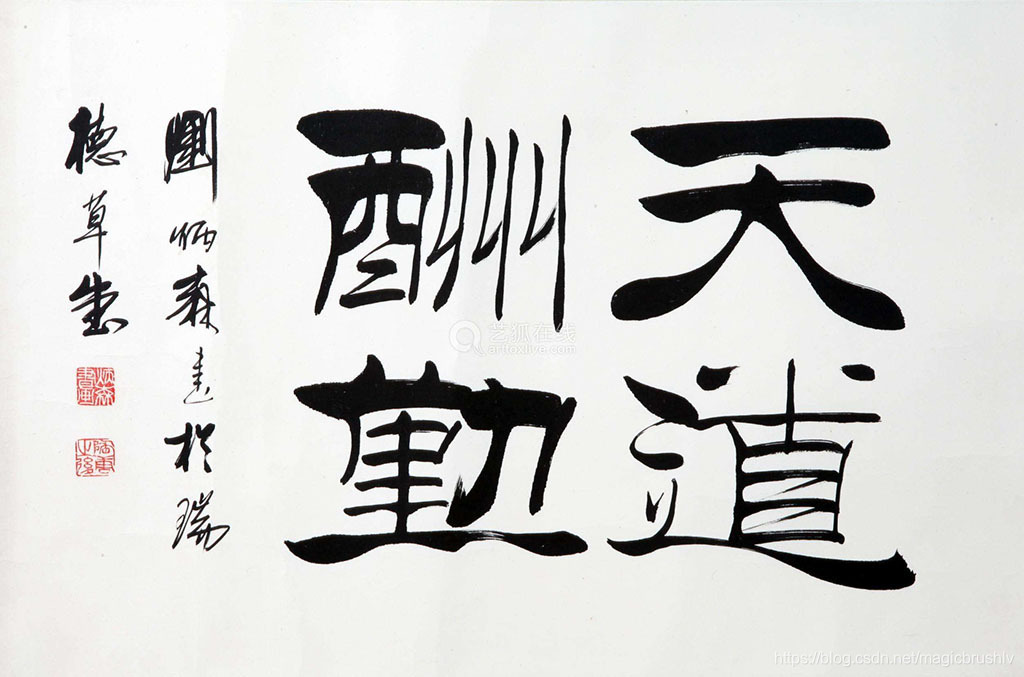 天道
酬勤
劉炳森書於瑞
德草堂
炳森書画
陶唐之後
艺狐在线
artfoxlive.com
https://blog.csdn.net/magicbrushlv